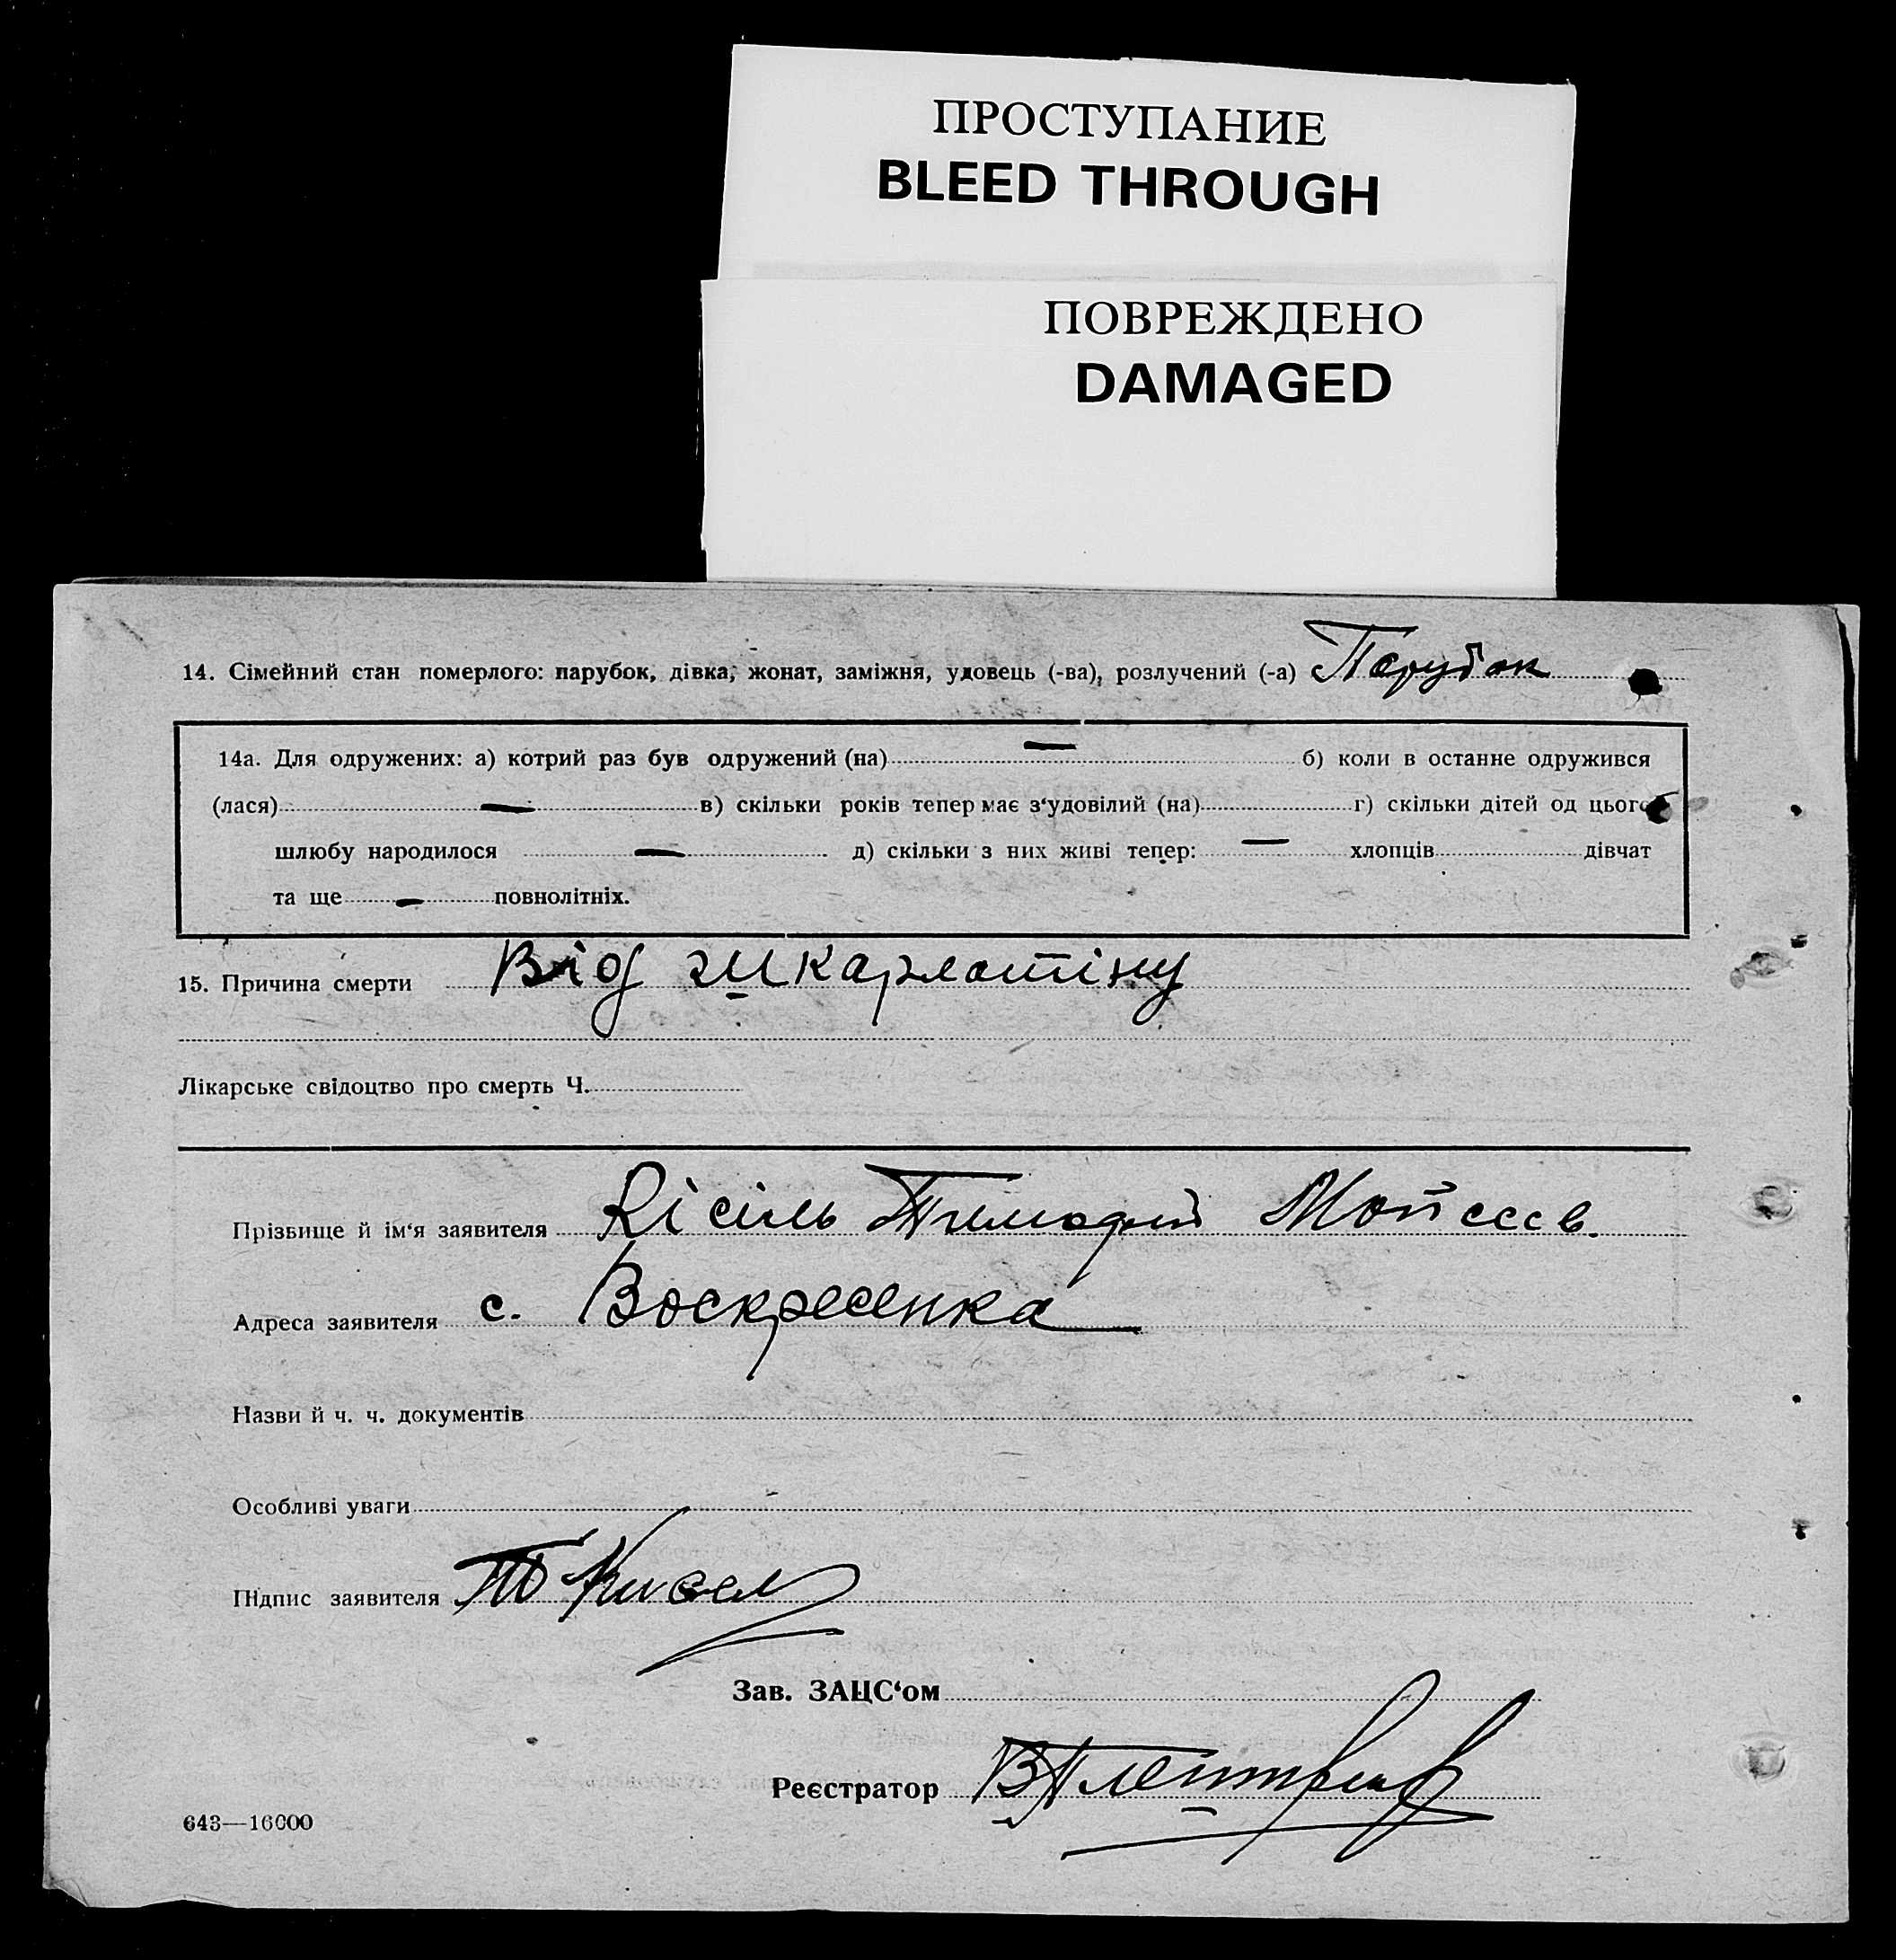 ПРОСТУПАНИЕ
BLEED THROUGH
ПОВРЕЖДЕНО
DAMAGED
14. Сімейний стан померлого: парубок, дівка, жонат, заміжня, удовець (-ва), розлучений (-а) Парубок
14а. Для одружених: а) котрий раз був одружений (на) — б) коли в останнє одружився
(лася) — в) скільки років тепер має з‘удовілий (на) г) скільки дітей од цього
шлюбу народилося — д) скільки з них живі тепер: — хлопців дівчат
та ще — повнолітніх.
15. Причина смерти Від шкарлатіну
Лікарське свідоцтво про смерть Ч.
Прізвище й ім‘я заявителя Кісіль Тимофій Мойсеєв.
Адреса заявителя с. Воскресенка
Назви й ч. ч. документів
Особливі уваги
Підпис заявителя Т Кисел
Зав. ЗАЦС‘ом
Реєстратор
643—16000